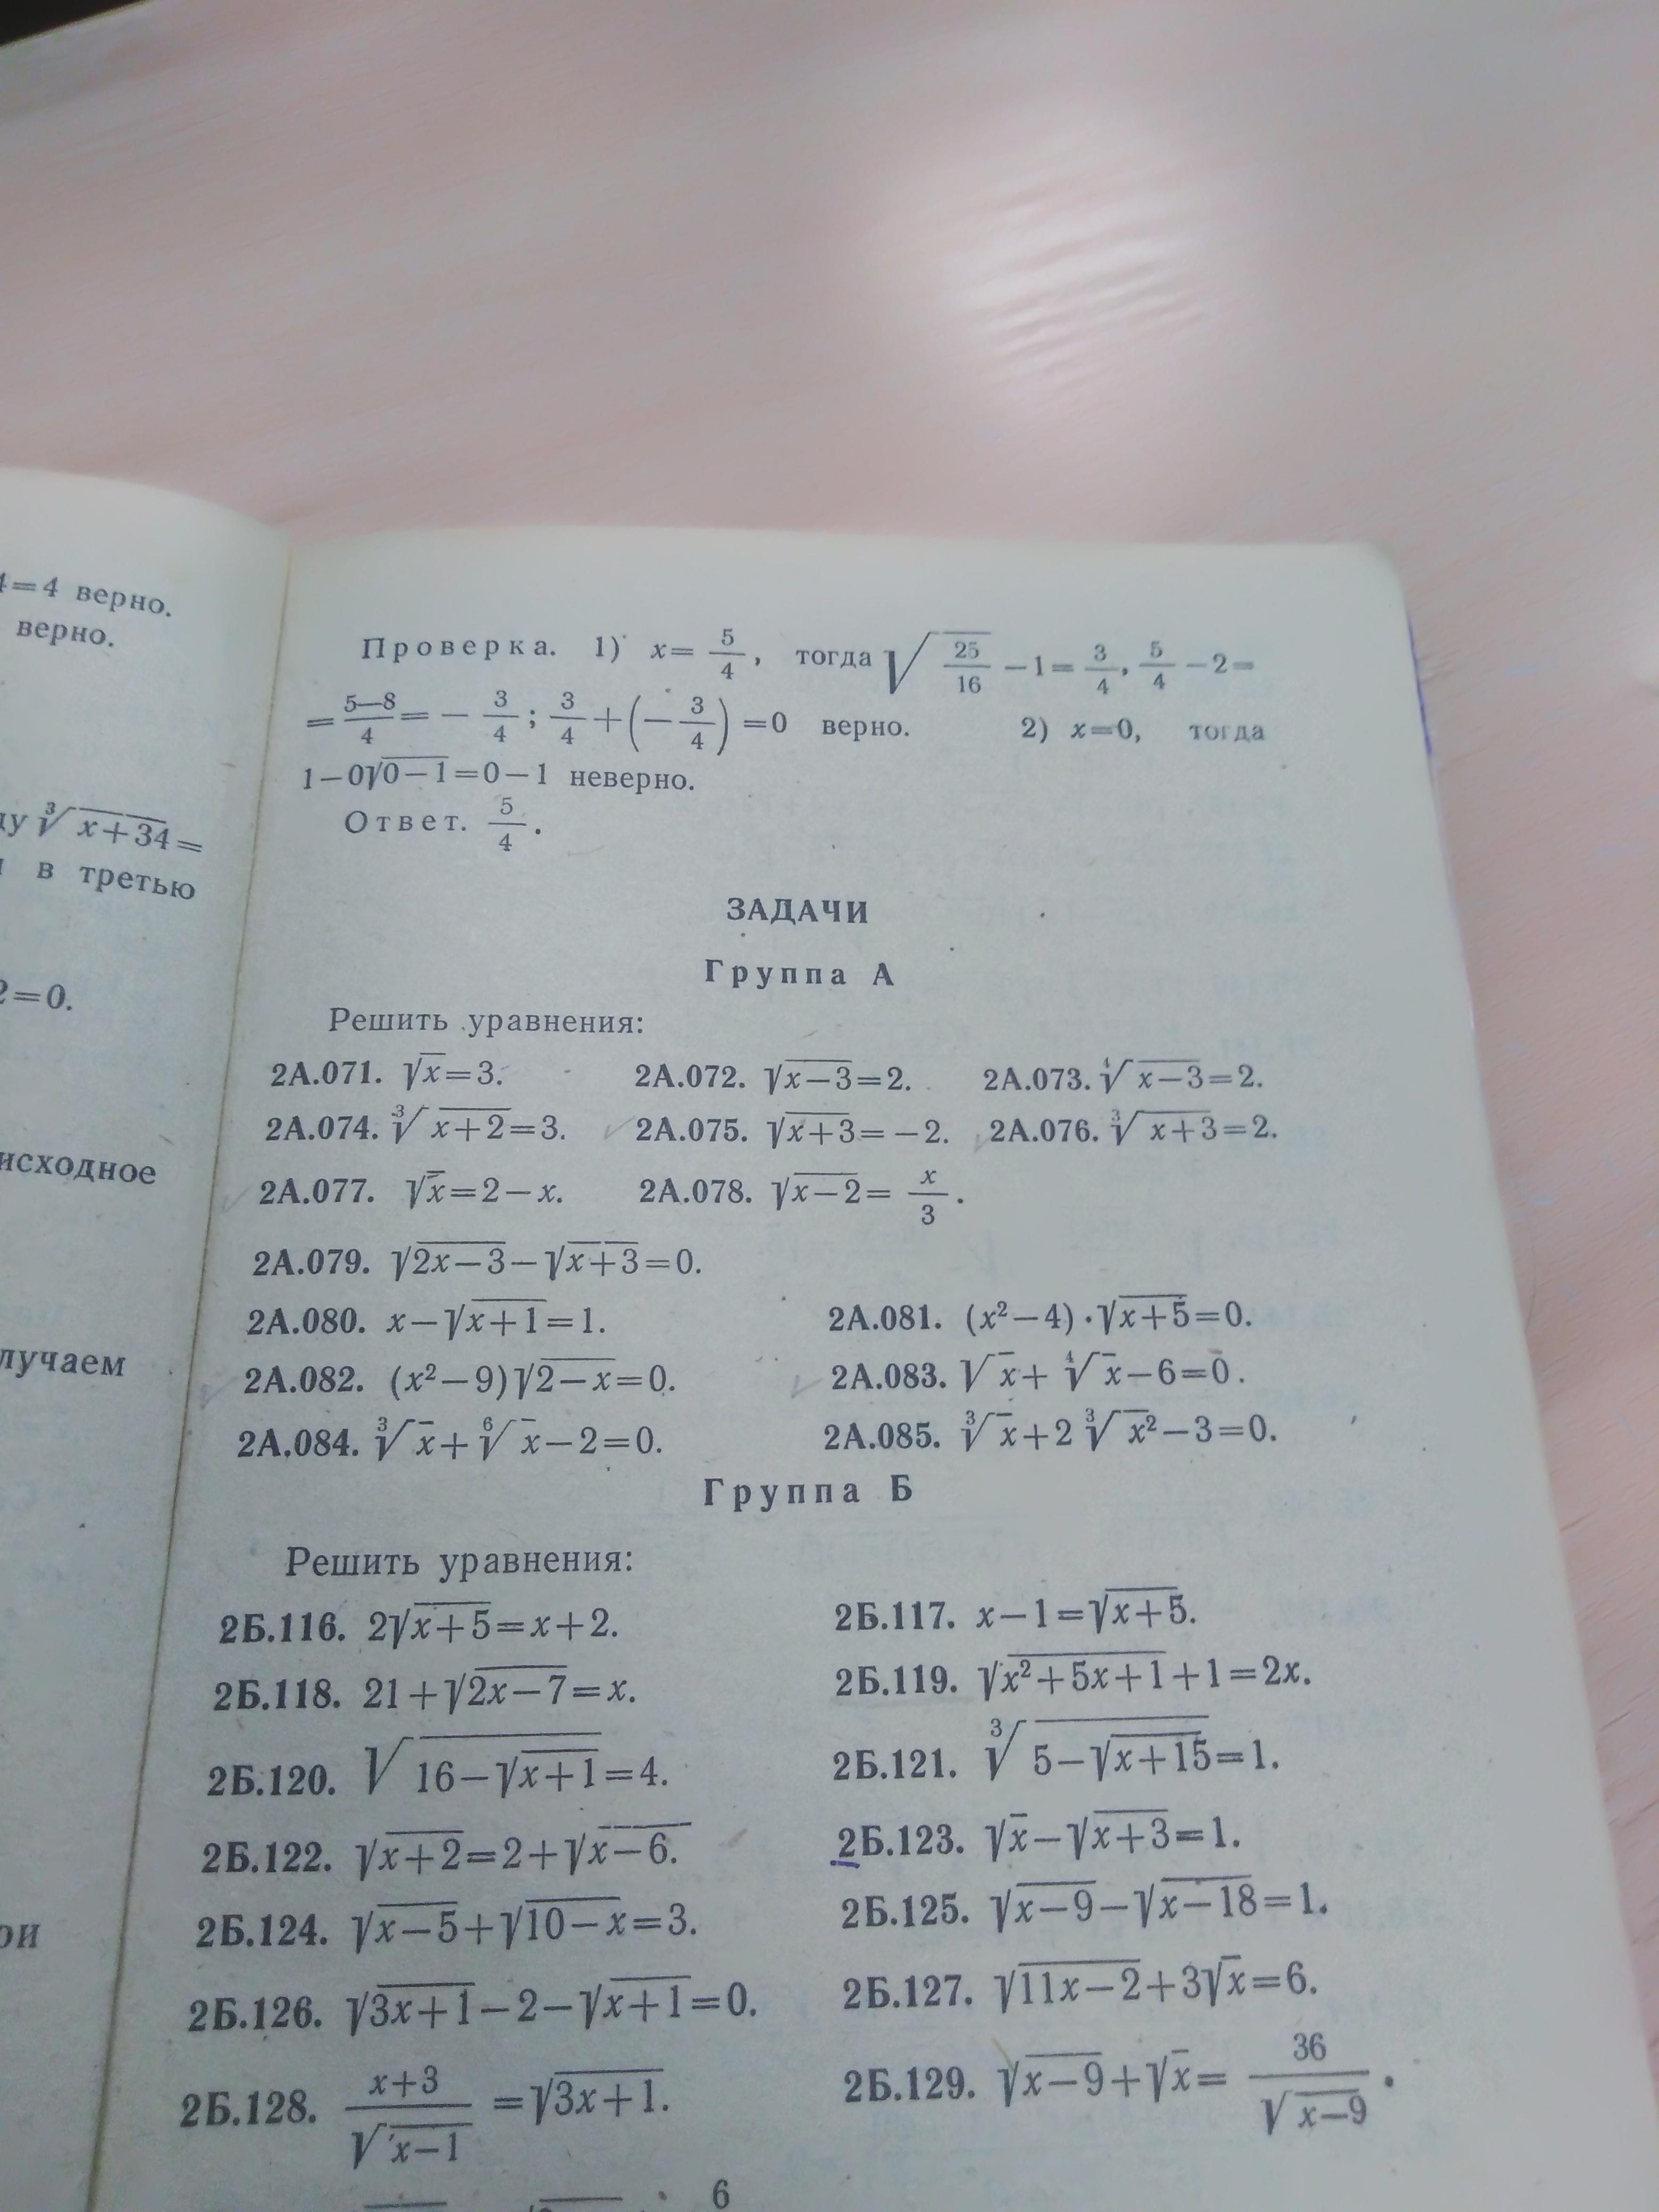 4=4 верно.
верно.
∛(x+34)=
в третью
2=0.
исходное
лучаем
Проверка. 1) x= 5/4, тогда √(25/16 −1)= 3/4, 5/4 −2=
= (5—8)/4 = − 3/4; 3/4 +(− 3/4) =0 верно. 2) x=0, тогда
1−0√(0−1)=0−1 неверно.
Ответ. 5/4.
ЗАДАЧИ
Группа А
Решить уравнения:
2А.071. √x=3. 2А.072. √(x−3)=2. 2А.073. ∜(x−3)=2.
2А.074. ∛(x+2)=3. 2А.075. √(x+3)=−2. 2А.076. ∛(x+3)=2.
2А.077. √x=2−x. 2А.078. √(x−2)= x/3.
2А.079. √(2x−3)−√(x+3)=0.
2А.080. x−√(x+1)=1. 2А.081. (x²−4)·√(x+5)=0.
2А.082. (x²−9)√(2−x)=0. 2А.083. √x+∜x−6=0.
2А.084. ∛x+⁶√x−2=0. 2А.085. ∛x+2∛x²−3=0.
Группа Б
Решить уравнения:
2Б.116. 2√(x+5)=x+2. 2Б.117. x−1=√(x+5).
2Б.118. 21+√(2x−7)=x. 2Б.119. √(x²+5x+1)+1=2x.
2Б.120. √(16−√(x+1))=4. 2Б.121. ∛(5−√(x+15))=1.
2Б.122. √(x+2)=2+√(x−6). 2Б.123. √x−√(x+3)=1.
2Б.124. √(x−5)+√(10−x)=3. 2Б.125. √(x−9)−√(x−18)=1.
2Б.126. √(3x+1)−2−√(x+1)=0. 2Б.127. √(11x−2)+3√x=6.
2Б.128. (x+3)/√(x−1) =√(3x+1). 2Б.129. √(x−9)+√x= 36/√(x−9).
6